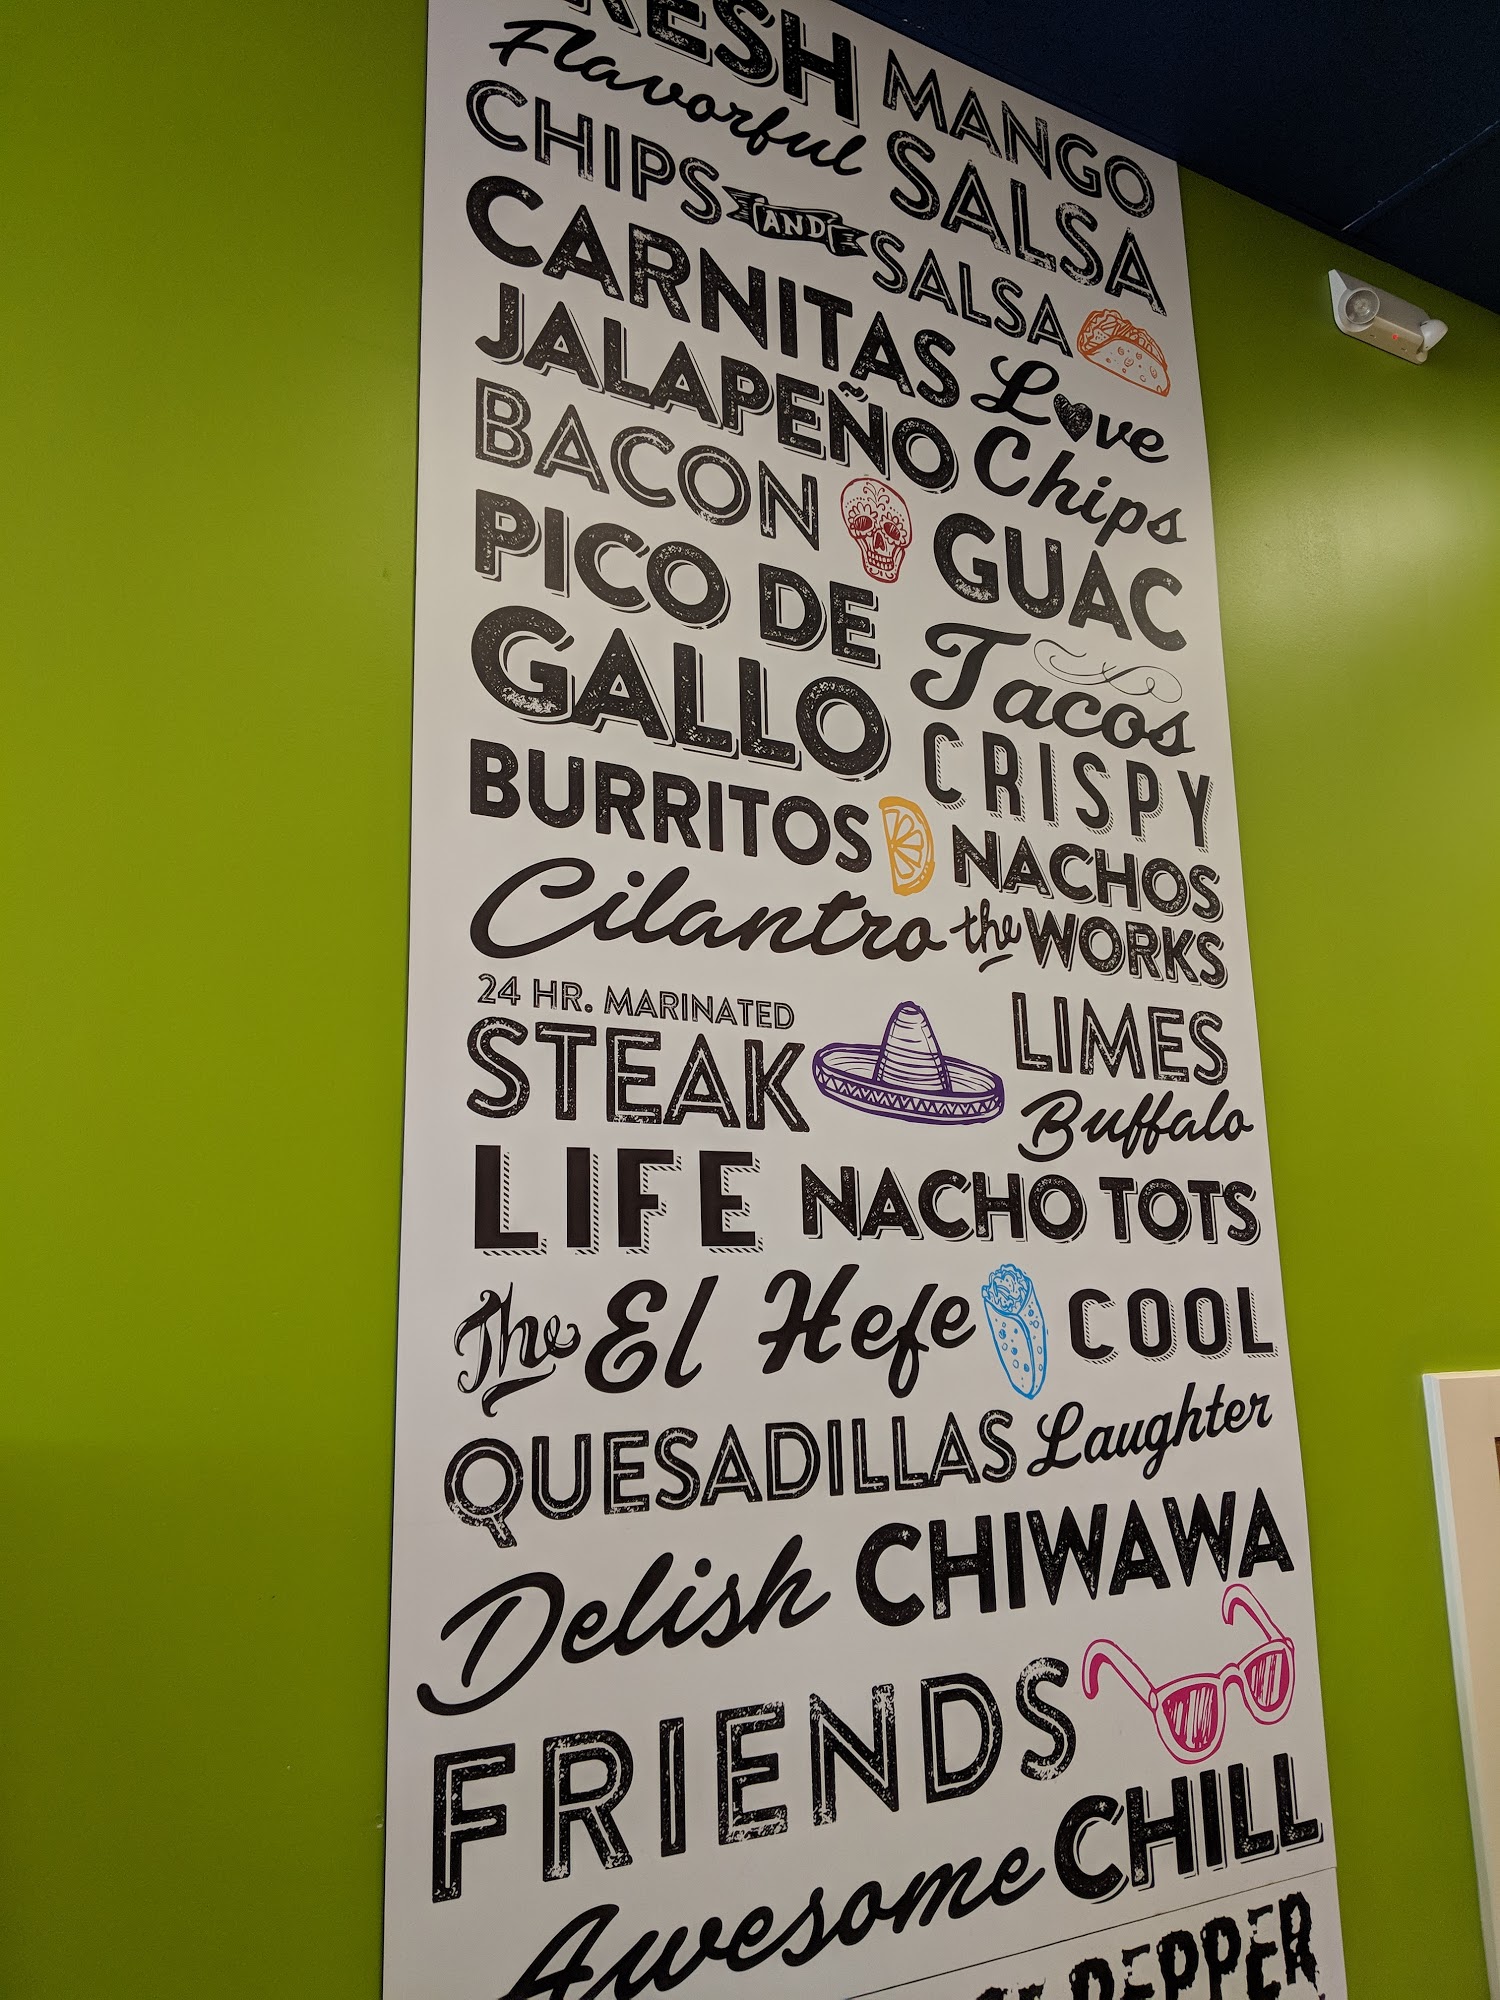 Flavorful
MANGO
SALSA
CHIPS AND SALSA
CARNITAS
Love
JALAPEÑO
Chips
BACON
GUAC
PICO DE
GALLO
Tacos
CRISPY
BURRITOS
NACHOS
Cilantro
the WORKS
24 HR. MARINATED
STEAK
LIMES
Buffalo
LIFE
NACHO TOTS
The El Hefe
COOL
QUESADILLAS
Laughter
Delish
CHIWAWA
FRIENDS
Awesome
CHILL
PEPPER